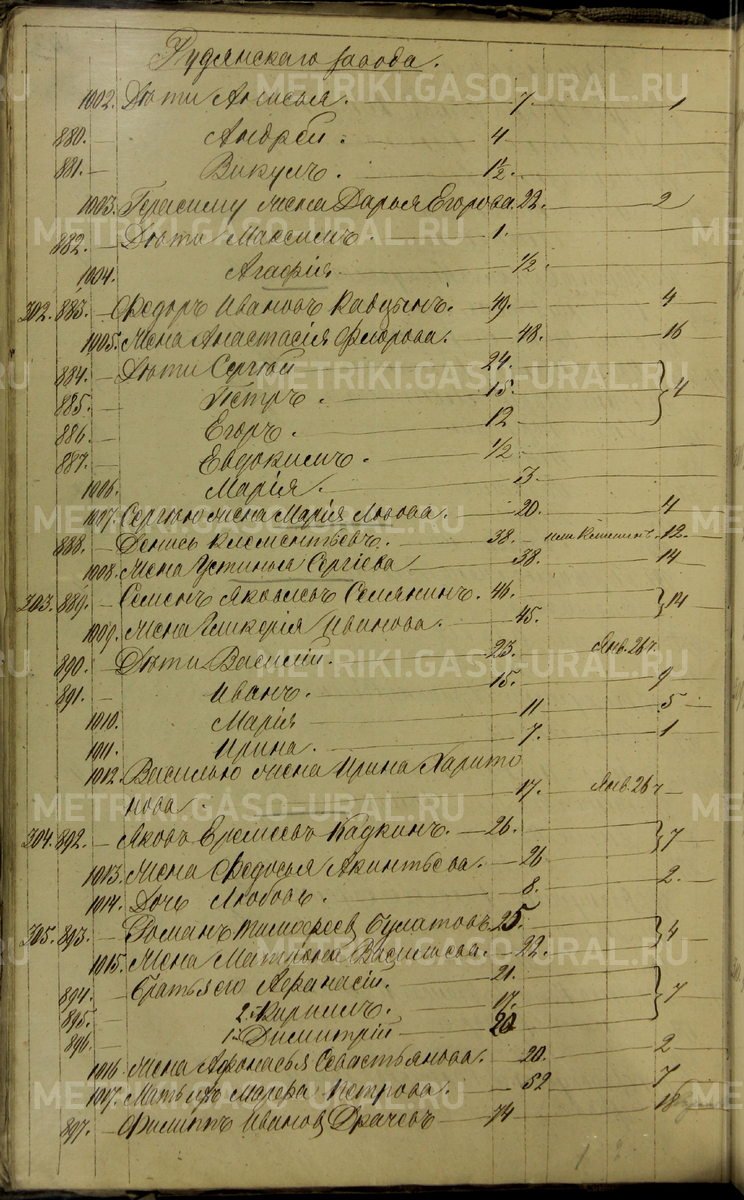 Рудянскаго завода.
1002. Дѣти Анисья. 7. 1
880. Андрей. 4
881. Викулъ. 1½.
1003. Герасиму жена Дарья Егорова. 22. 2
882. Дѣти Максимъ. 1.
1004. Агафія ½.
302. 883. Ѳедоръ Ивановъ 49. 4
1005. Жена Анастасія Фролова. 48. 16
884. Дѣти Сергѣй 24. 4
885. Петръ. 15.
886. Егоръ. 12
887. Евдокимъ. ½
1006. Марія. 3.
1007. Сергѣю жена Марія Львова. 20. 4
888. Денисъ Клементьевъ. 38. 12.
1008. Жена Устинья Сергіева 38. 14
303. 889. Семенъ Яковлевъ Семянинъ. 46. 14
1009. Жена Гликерія Иванова. 45.
890. Дѣти Василій. 23. Янв. 26 ч.
891. Иванъ. 15. 9
1010. Марія 11 5
1011. Ирина. 7. 1
1012. Василью жена Ирина Харито
нова. 17. Янв. 26 ч
304. 892. Яковъ Еремеевъ Кадкинъ. 26. 7
1013. Жена Ѳедосья Акинтьева. 26
1014. Дочь Любовь. 8. 2.
305. 893. Романъ Тимофеев Булатовъ 25. 4
1015. Жена Матрона Васильева. 22.
894. Братья его Афанасій. 21. 7
895. 2. Кирилъ. 17.
896. 1. Димитрій 20
1016. Жена Афонасья Севастьянова. 20. 2
1017. Мать ихъ Марфа Петрова. 52 7
897. Филиппъ Иванов Драчевъ 74 18
METRIKI.GASO-URAL.RU